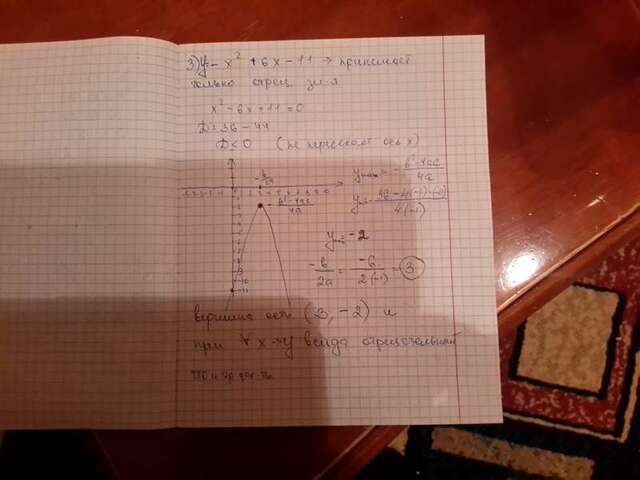 3) y = - x² + 6x - 11 → принимает
только отриц. зн-я
x² - 6x + 11 = 0
D = 36 - 44
D < 0 (не пересекает ось x)
-b/2a
y = - (b² - 4ac)/4a
- (b² - 4ac)/4a
y = - (36 - 4(-1)·(-11))/4(-1)
y = -2
-b/2a = -6/2(-1) = 3
-10
-11
вершина есть (3, -2) и
при ∀ x → y всегда отрицательный